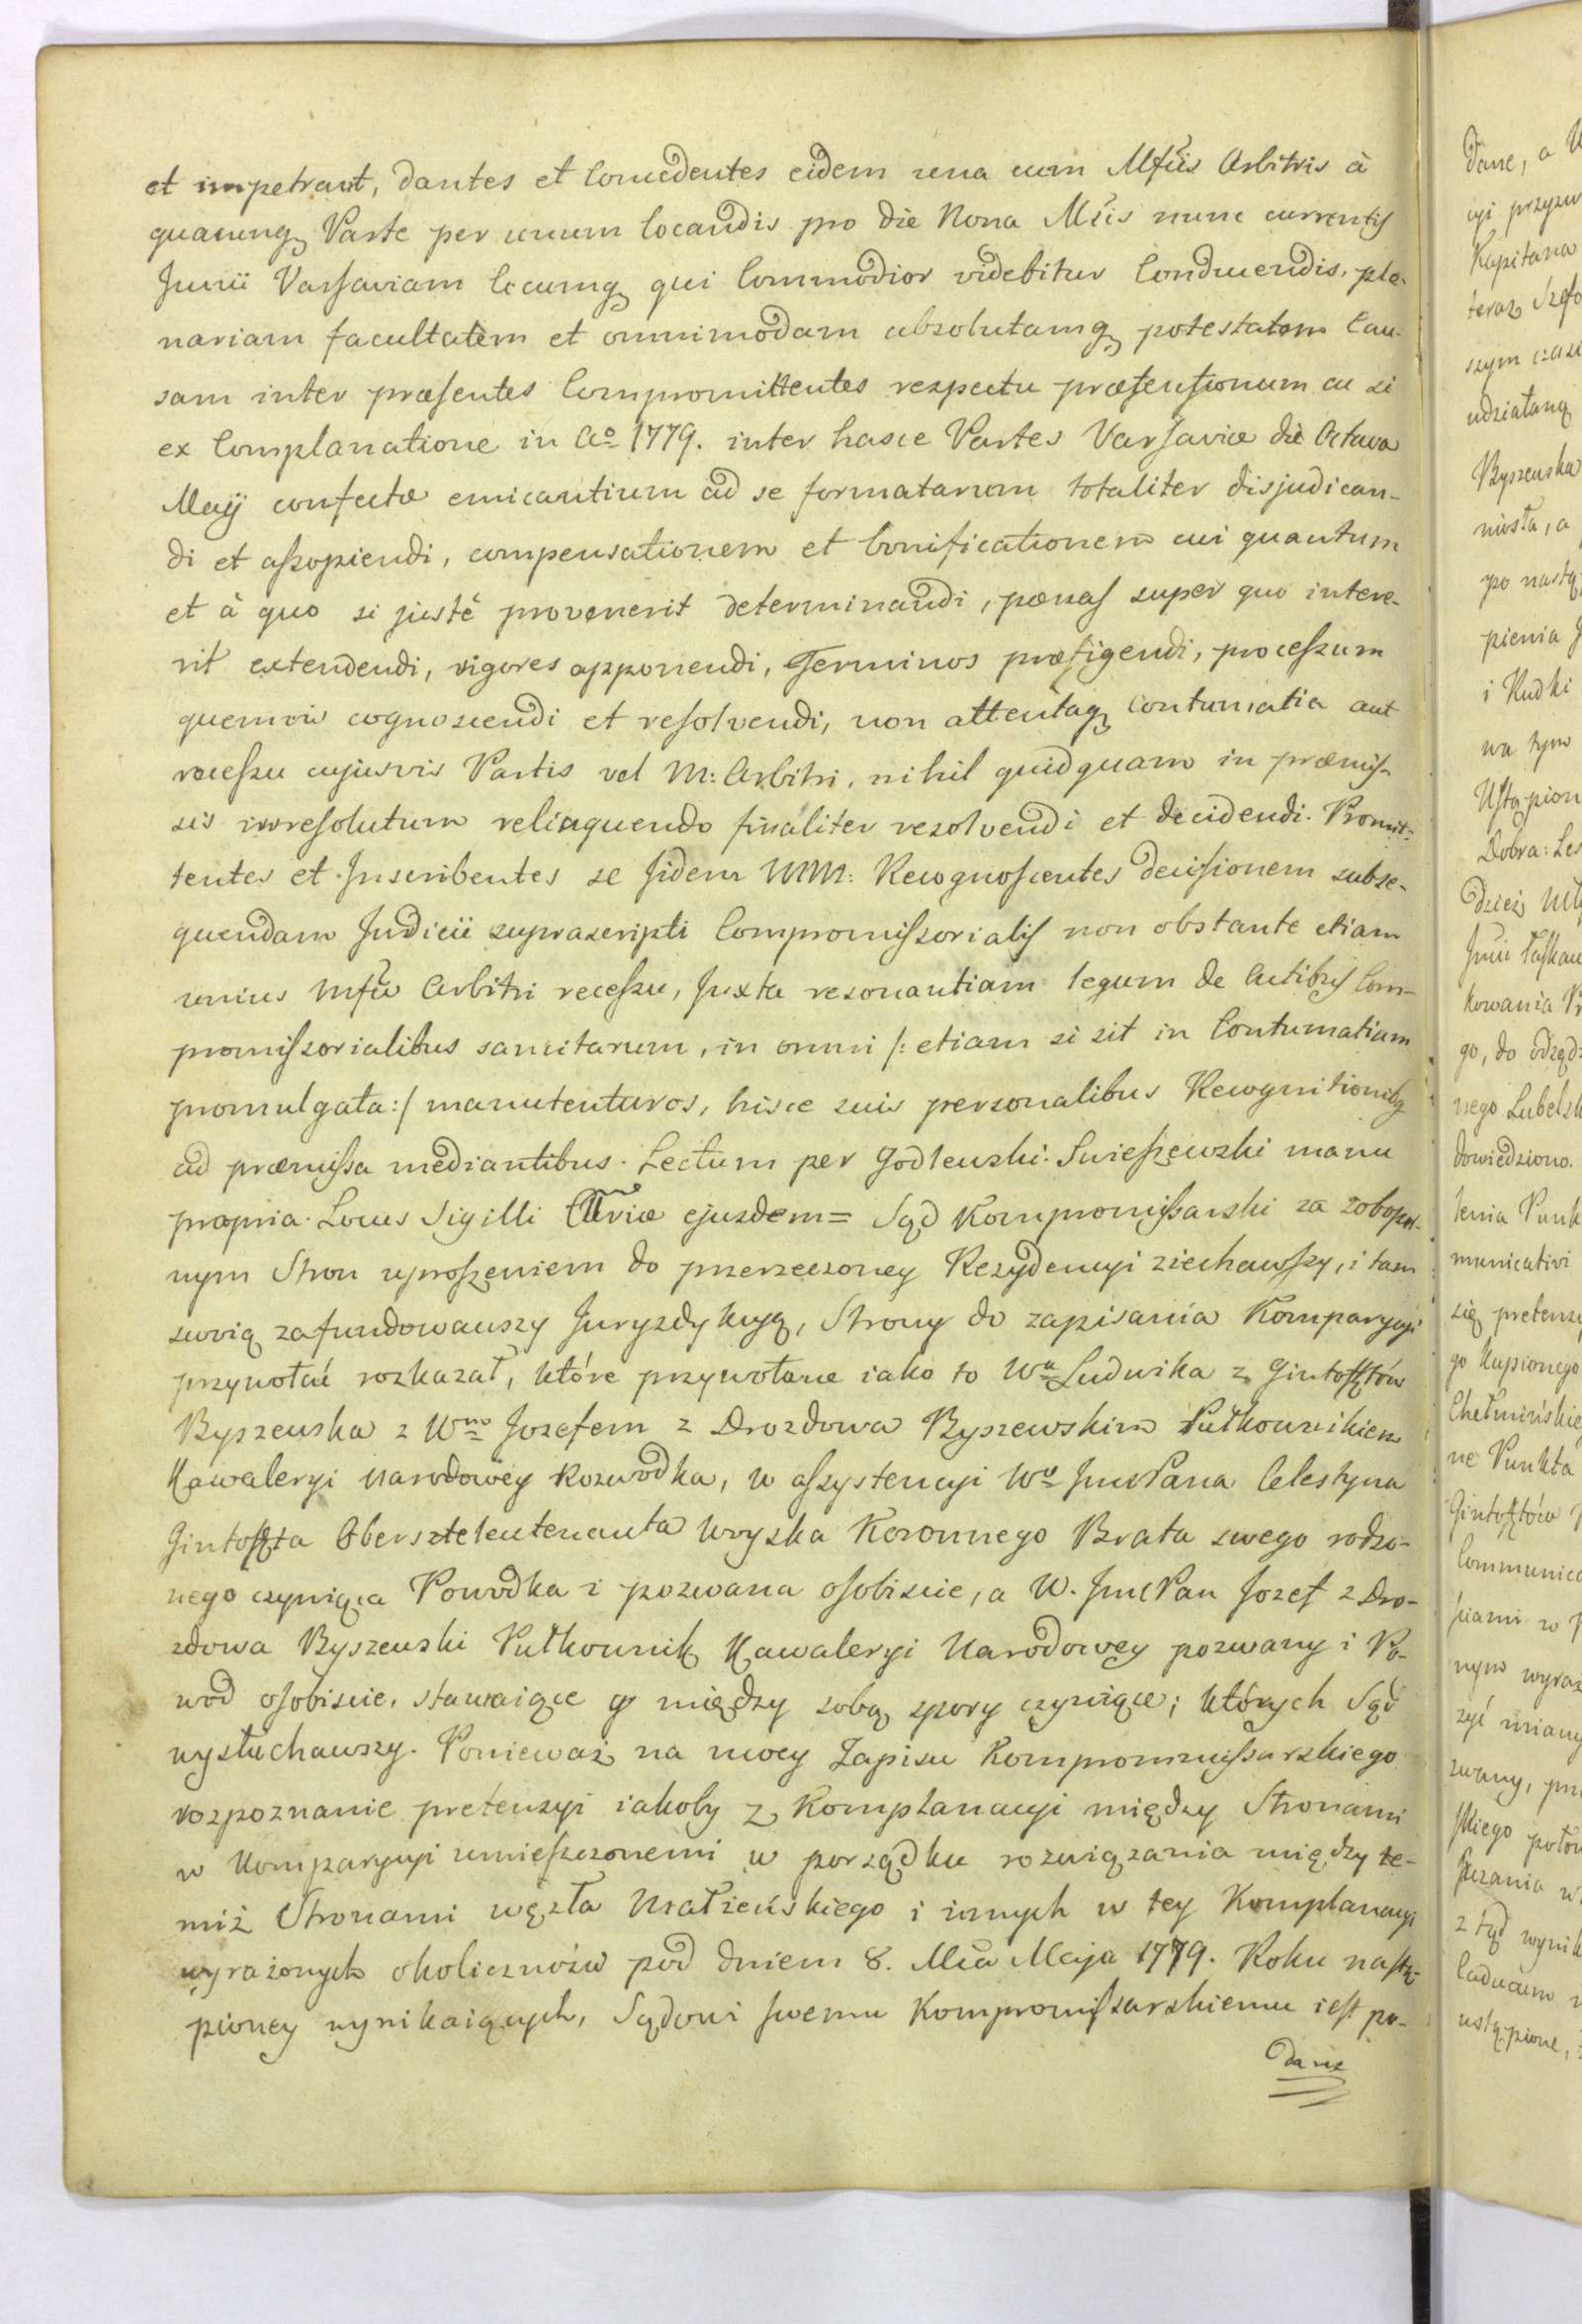 et impetrant, dantes et Concedentes eidem una cum Mfcis Arbitris à
quacunqꝫ Parte per unum locandis pro die Nona Msis nunc currentis
Junii Varsaviam locumqꝫ qui Commodior videbitur Conducendis, ple-
nariam facultatem et omnimodam absolutamqꝫ potestatem Cau-
sam inter præsentes Compromittentes respectu prætensionum ac si
ex Complanatione in Ao 1779. inter hasce Partes Varsaviæ die Octava
Maij confectæ emicantium ad se formatarum totaliter disjudican-
di et assopiendi, compensationem et bonificationem cui quantum
et à quo si justé provenerit determinandi, pænas super quo intere-
rit extendendi, vigores apponendi, Terminos præfigendi, processum
quemvis cognoscendi et resolvendi, non attentaqꝫ contumatia aut
recessu cujusvis Partis vel M: Arbitri, nihil quidquam in præmis-
sis irresolutum relinquendo finaliter resolvendi et decidendi. Promit-
tentes et Inscribentes se Jidem MM: Recognoscentes decisionem subse-
quendam Judicii suprascripti Compromissorialis non obstante etiam
unius Mfci Arbitri recessu, Juxta resonantiam legum de Actibus Com-
promissorialibus sancitarum, in omni /: etiam si sit in Contumatiam
promulgata :/ manutenturos, hisce suis personalibus Recognitionibꝫ
ad præmissa mediantibus. Lectum per Godlewski. Swieszewski manu
propria. Locus Sigilli Curiæ ejusdem = Sąd Kompromissarski za zobopol-
nym Stron uproszeniem do przerzeczoney Rezydencyi ziechawszy, i tam
swoią zafundowawszy Juryzdykcyą, Strony do zapisania Komparycyi
przywołać rozkazał, które przywołane iako to Wa Ludwika z Gintowtów
Byszewska z Wm Jozefem z Drozdowa Byszewskim Pułkownikiem
Kawaleryi Narodowey Rozwodka, w assystencyi Wo Jmc Pana Celestyna
Gintowta Oberszteleutenanta Woyska Koronnego Brata swego rodzo-
nego czyniąca Powodka i pozwana osobiscie, a W. Jmc Pan Jozef z Dro-
zdowa Byszewski Pułkownik Kawaleryi Narodowey pozwany i Po-
wod osobiscie, stawaiące y między sobą spory czyniące; których Sąd
wysłuchawszy. Ponieważ na mocy Zapisu Kompromissarskiego
rozpoznanie pretensyi iakoby z Komplanacyi między Stronami
w Komparycyi umieszczonemi w porządku rozwiązania między te-
miż Stronami węzła Małżeńskiego i innych w tey Komplanacyi
wyrażonych okoliczności pod dniem 8. Msca Maja 1779. Roku nastą-
pioney wynikaiących, Sądowi swemu Kompromissarskiemu iest po-
dane
dane, a
cyi przyzw
Kapitana
teraz Szefo
szym czasie
udziałaną
Byszewska
niosła, a
po nastą
pienia
i Rudki
na tym
Ustąpion
Dobra: Les
dzież
kowania
go, do odsądz
nego Lubelsk
dowiedziono.
tenia Punk
municativi
się pretensy
go kupionego
Chełmińskie
ne Punkta
Gintowtów
Communica
niami w
nym wyraz
zyć miany
zwany, prz
skiego poło
z tąd wynik
Caducum
ustąpione,